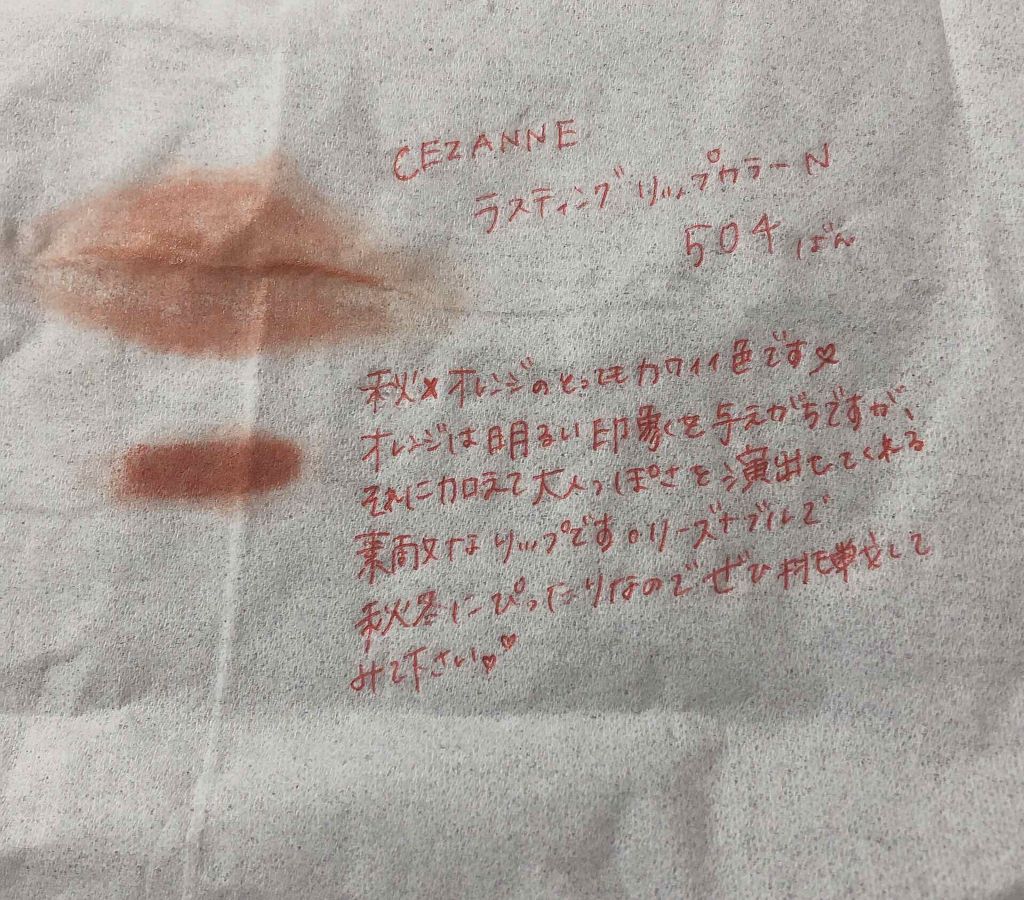 CEZANNE
ラスティングリップカラーN
504ばん
秋×オレンジのとってもカワイイ色です♡
オレンジは明るい印象を与えがちですが、
それに加えて大人っぽさを演出してくれる
素敵なリップです。リーズナブルで
秋冬にぴったりなのでぜひ挑戦して
みて下さい♡♡